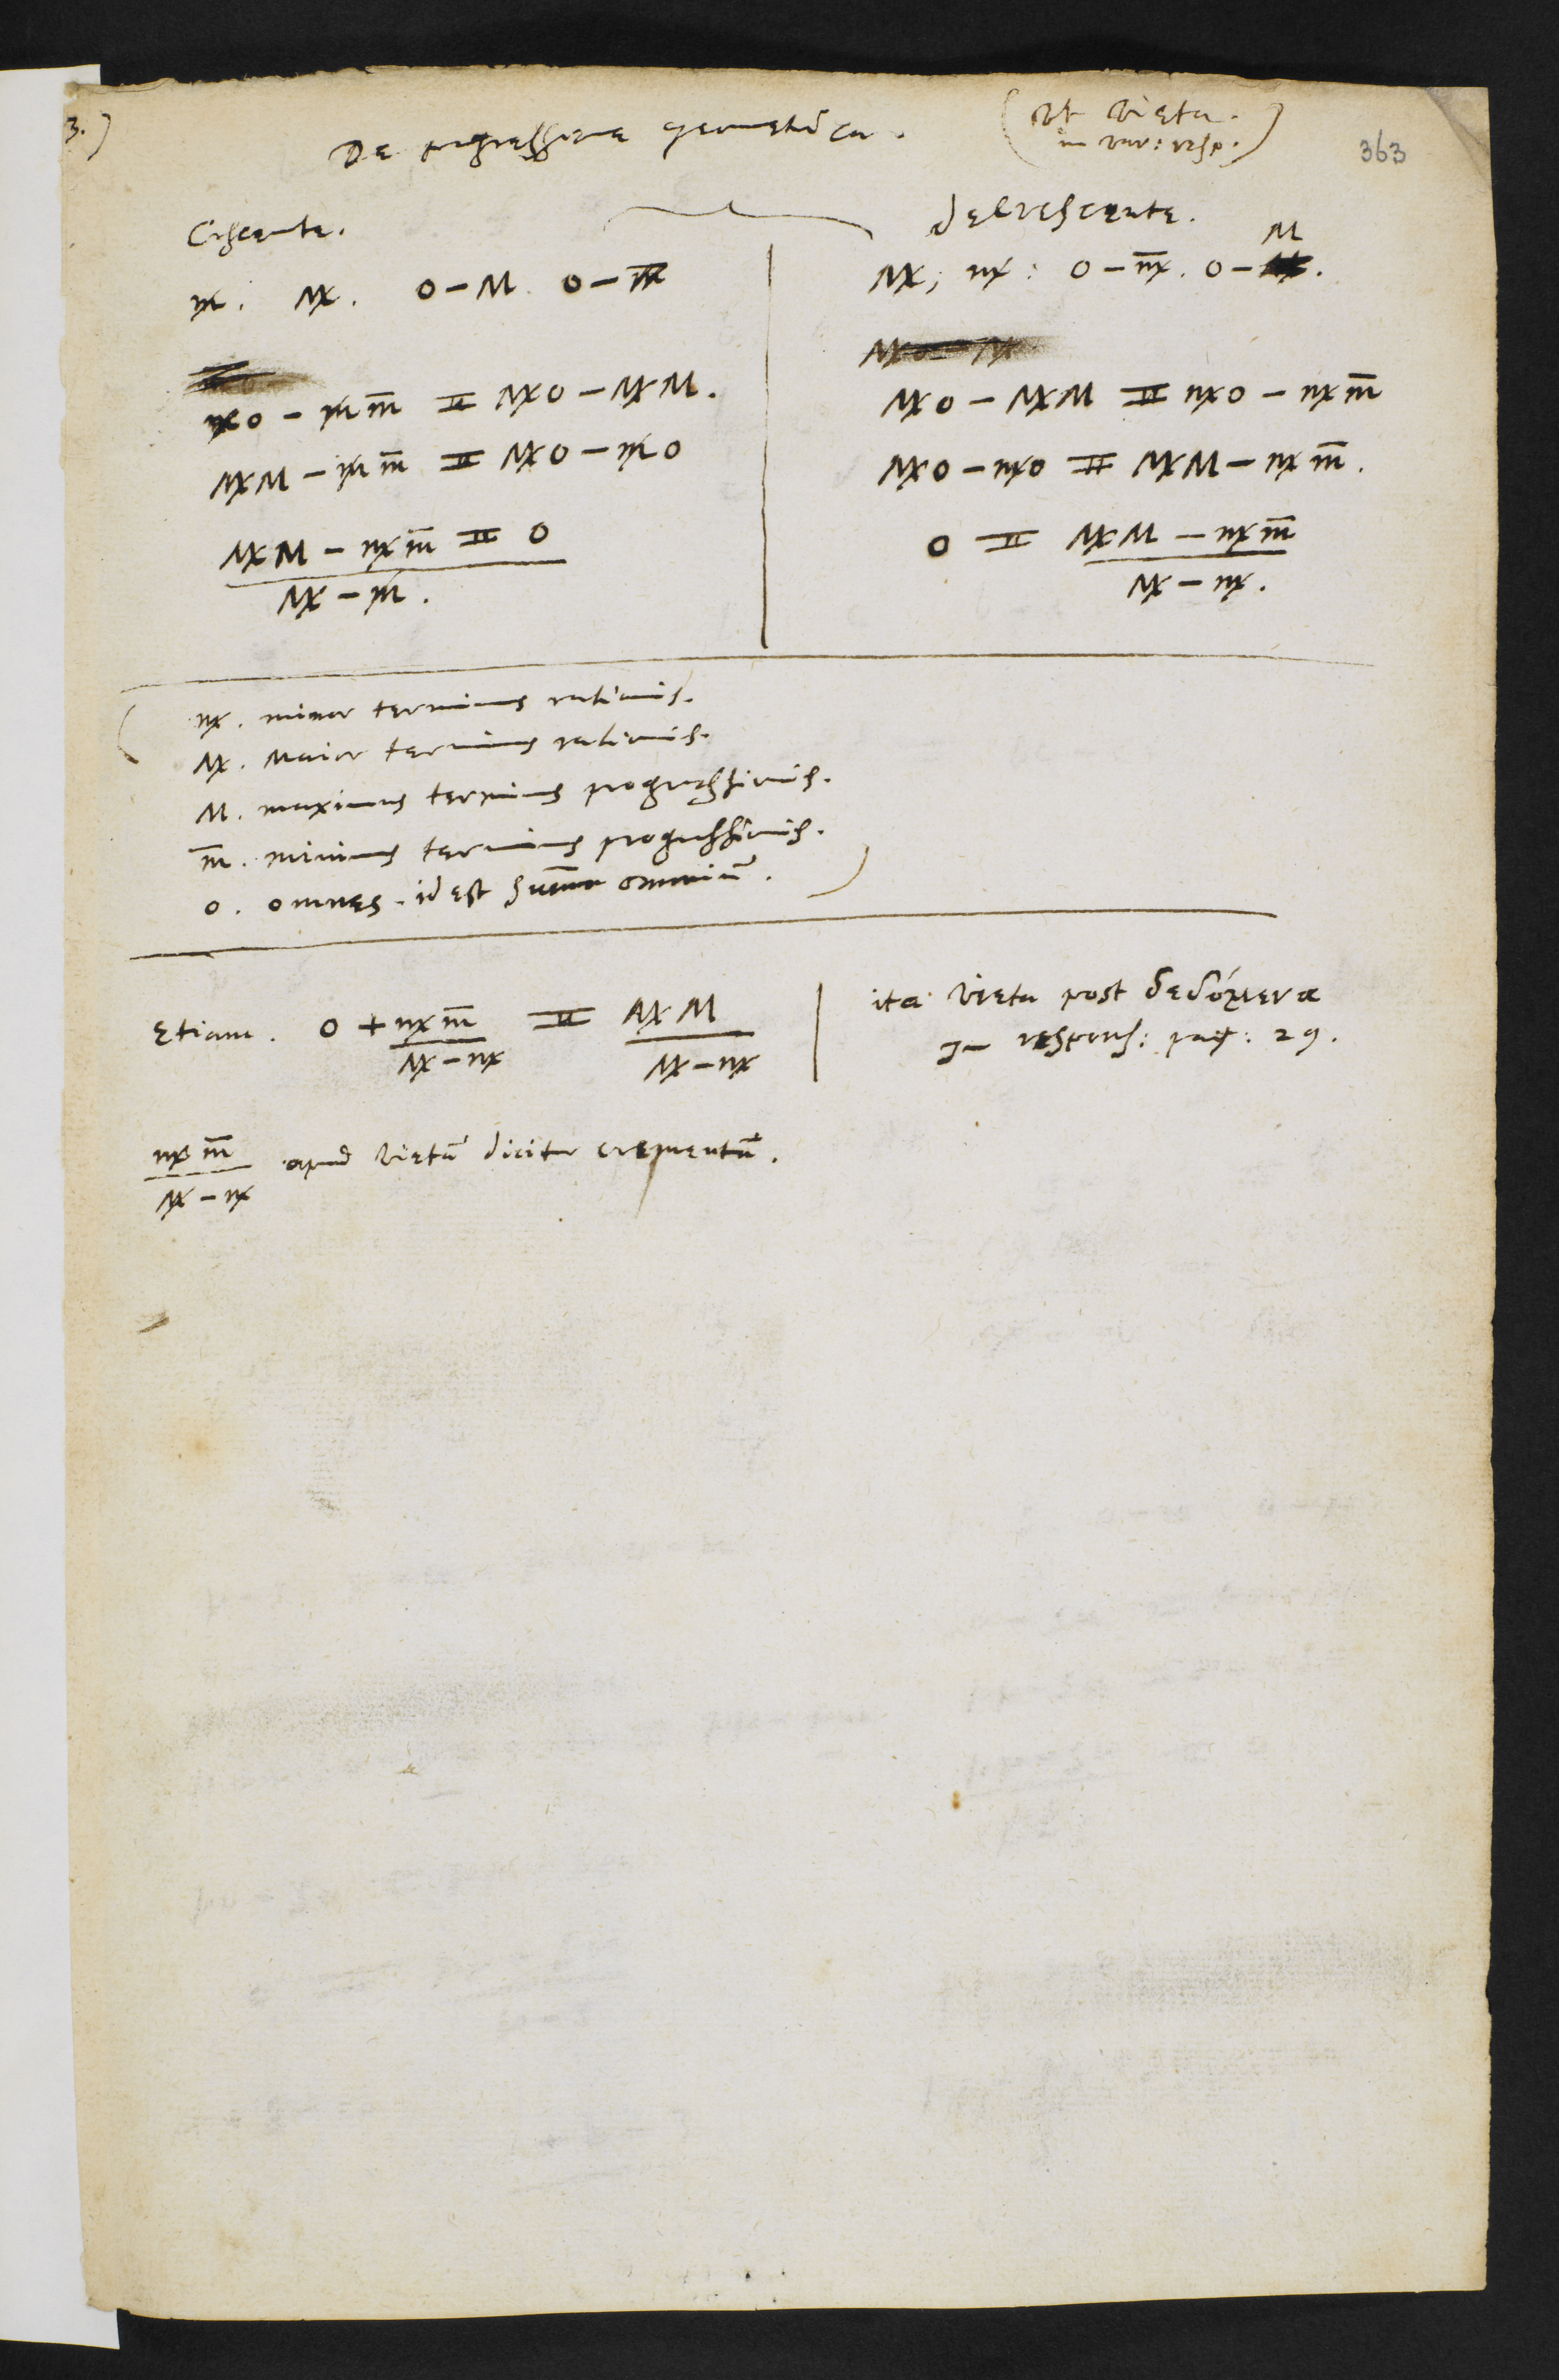 3.)
De progressione geometrica. (Ut Vieta.
in var: resp.)
363
Crescente.
decrescente.
mx. Mx. o-M. o-m̅
Mx; mx: o-m̅x. o-M.
mxo - mxm̅ = Mxo - MxM.
MxM - mxm̅ = Mxo - mxo
MxM - mxm̅ = o
Mx - mx.
Mxo - MxM = mxo - mxm̅
Mxo - mxo = MxM - mxm̅.
o = MxM - mxm̅
Mx - mx.
( mx. minor terminus rationis.
Mx. Maior terminus rationis.
M. maximus terminus progressionis.
m̅. minimus terminus progressionis.
o. omnes. id est summa omniũ. )
Etiam. o + mxm̅ = MxM
Mx - mx Mx - mx
ita Vieta post δεδόμενα
In respons: pag: 29.
mxm̅ apud Vietã dicitur crementũ.
Mx - mx